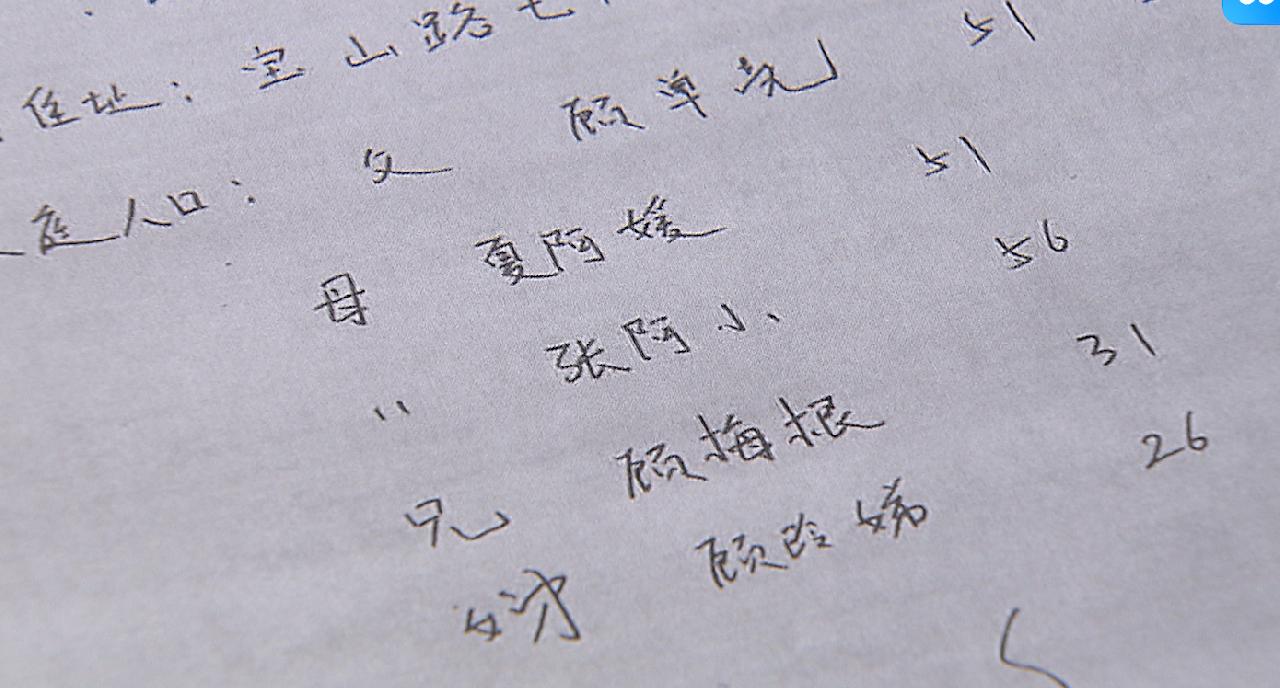 住址：宝山路七
庭人口：父 顾单 51
母 夏阿媛 51
〃 张阿小 56
兄 顾梅根 31
顾 娣 26